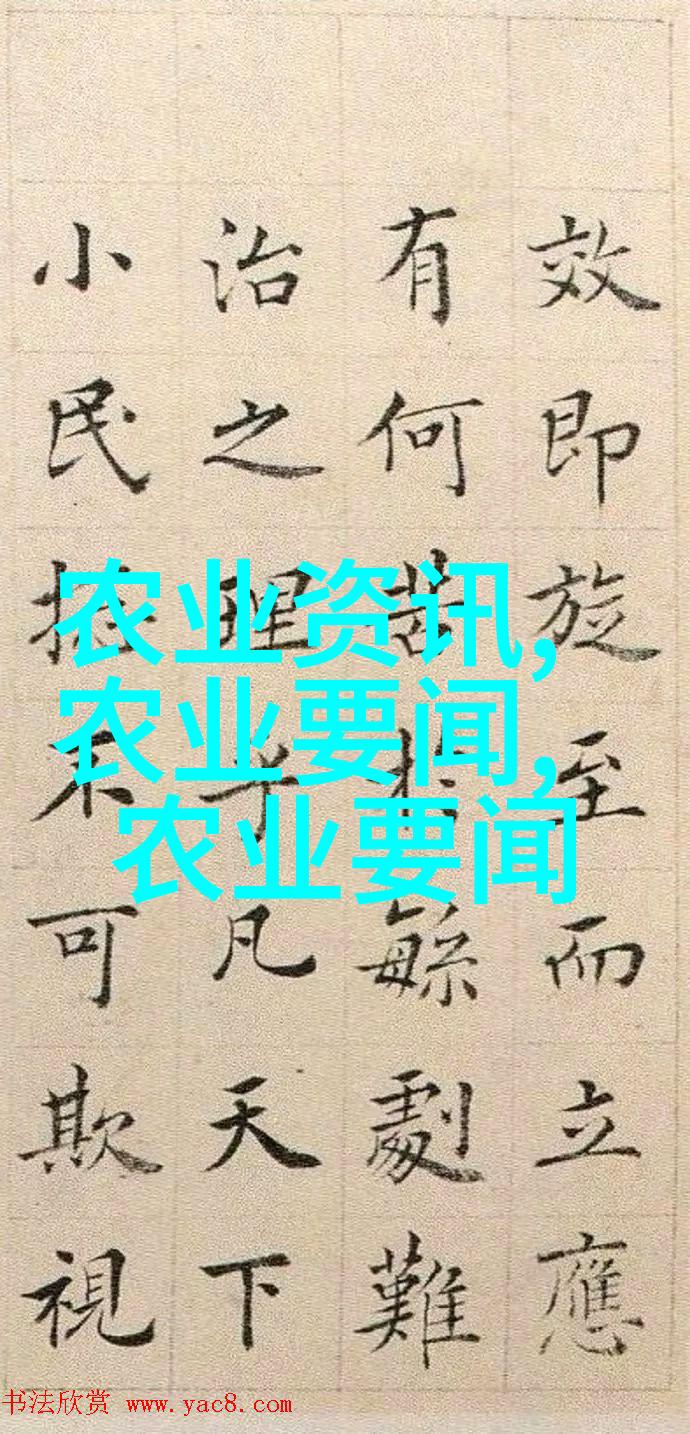 效即旋至而立應
有何於緐劇難
治之理乎凡天下
小民不可欺視
农业资讯,
农业要闻,
农业要闻
书法欣赏 www.yac8.com